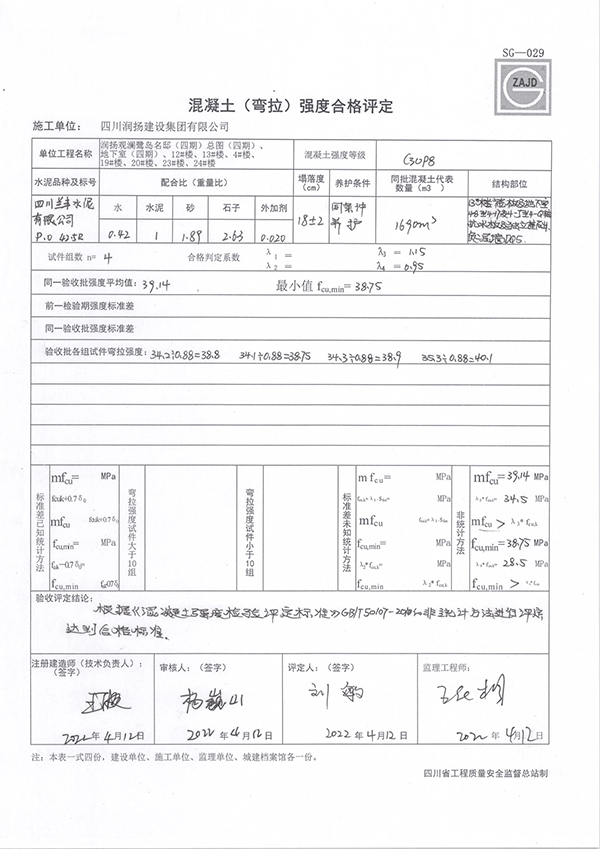 SG—029
ZAJD
混凝土（弯拉）强度合格评定
施工单位： 四川润扬建设集团有限公司
单位工程名称 润扬观澜鹭岛名邸（四期）总图（四期）、地下室（四期）、12#楼、13#楼、4#楼、19#楼、20#楼、23#楼、24#楼 混凝土强度等级 C30P8
水泥品种及标号 配合比（重量比） 塌落度（cm） 养护条件 同批混凝土代表数量（m3 ） 结构部位
四川兰丰水泥有限公司 P.O 42.5R 水 水泥 砂 石子 外加剂 18±2 同条件养护 1690m³
0.42 1 1.89 2.63 0.020
试件组数 n= 4 合格判定系数 λ1 = λ3 = 1.15
λ2 = λ4 = 0.95
同一验收批强度平均值：39.14 最小值 fcu,min= 38.75
前一检验期强度标准差
同一验收批强度标准差
验收批各组试件弯拉强度：34.2÷0.88=38.8 34.1÷0.88=38.75 34.3÷0.88=38.9 35.3÷0.88=40.1
标准差已知统计方法
mfcu= MPa
fcuk+0.7δ0
mfcu fcuk+0.7δ0
fcu,min= MPa
fcuk-0.7δ0=
fcu,min
弯拉强度试件大于10组
弯拉强度试件小于10组
标准差未知统计方法
mfcu= MPa
MPa
mfcu
fcu,min= MPa
MPa
fcu,min
非统计方法
mfcu= 39.14 MPa
34.5 MPa
mfcu >
fcu,min= 38.75 MPa
28.5 MPa
fcu,min >
验收评定结论：
根据《混凝土强度检验评定标准》GB/T50107-2010的非统计方法进行评定
达到合格标准。
注册建造师（技术负责人）：（签字） 审核人：（签字） 评定人：（签字） 监理工程师：
2022 年 4月12日 2022 年 4月12日 2022 年 4月12日 2022 年 4月12日
注：本表一式四份，建设单位、施工单位、监理单位、城建档案馆各一份。
四川省工程质量安全监督总站制